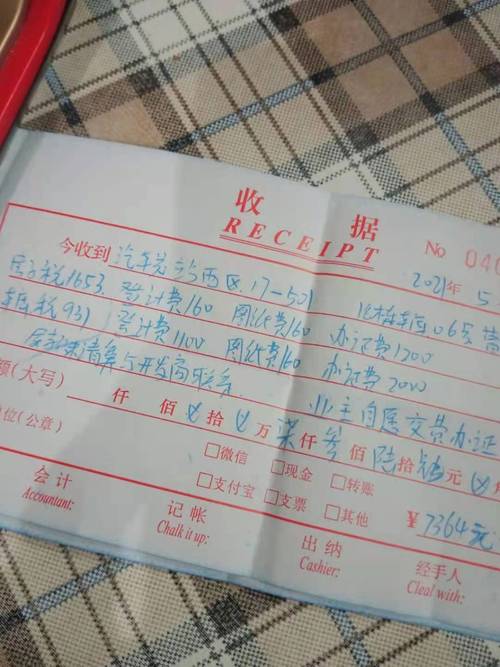 收 据
RECEIPT
No 040
2021年 5
今收到 汽车 西区.17-501 车库 06号
房子税1653, 登计费160 图纸费160 办证费1200
车库税931, 登计费1100 图纸费160 办证费2000
清算与开发商联系 业主自愿交费办证
额(大写) 仟 佰 拾 万 柒仟叁佰陆拾 元
位(公章) □微信 □现金 □转账
□支付宝 □支票 □其他 ¥7364元
会 计 记 帐 出 纳 经手人
Accountant: Chalk it up: Cashier: Cleal with: